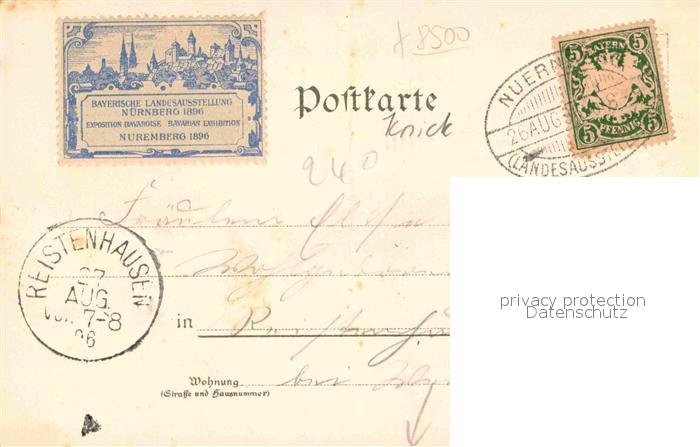 BAYERISCHE LANDESAUSSTELLUNG
NÜRNBERG 1896
EXPOSITION BAVAROISE BAVARIAN EXHIBITION
NUREMBERG 1896
8500
Postkarte
Knick
NUERN
26 AUG
(LANDESAUSST
5 BAYERN 5
5 PFENNIG 5
240
Fräulein
REISTENHAUSEN
27
AUG.
7-8
96
in
Wohnung
(Straße und Hausnummer)
bei
privacy protection
Datenschutz